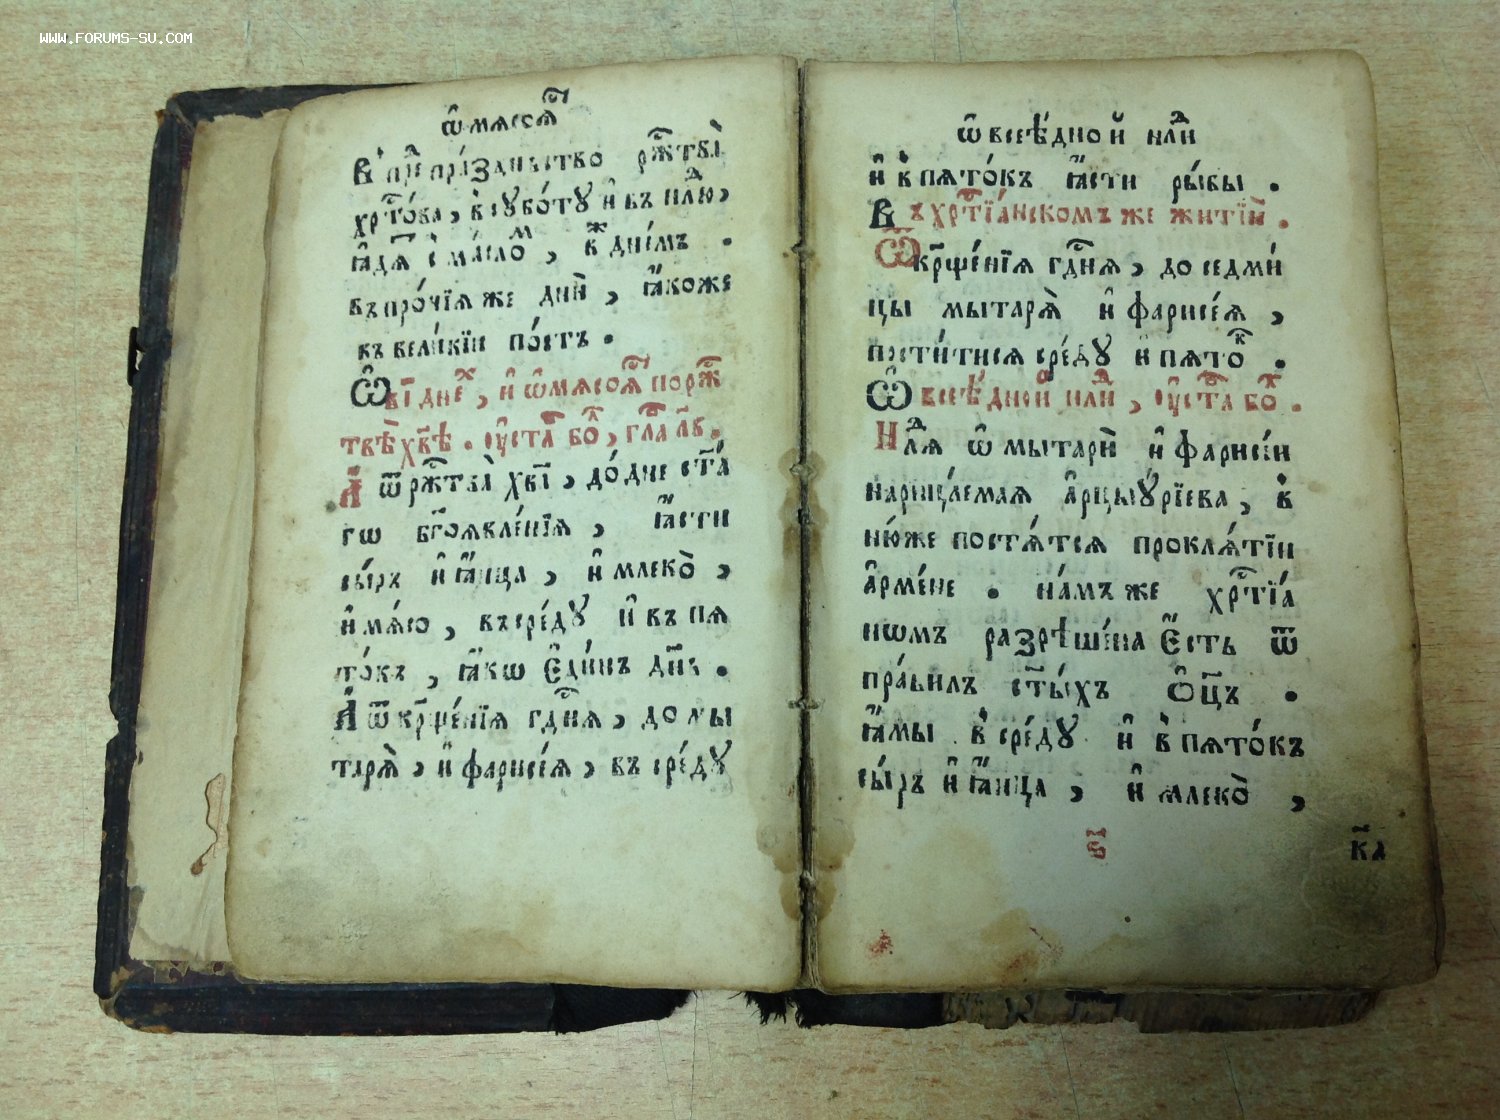 WWW.FORUMS-SU.COM
ѡ҆ мѧсоѧⷭ҇
В̾ пре́ⷣ пра́здньство рⷤ҇тва̀
хрⷭ҇то́ва, в̾сꙋбо́тꙋ и҆ въ нлⷣю,
ꙗ҆дѧ́ⷮ с̾ ма́сло́ⷨ, вⷤ днє́мъ .
въ про́чїѧ же дни̑, ꙗ҆́коже
въ вели́кїи по́стъ .
Ѽ вı҃ днеⷯ, и҆ ѡ҆ мѧсоѧⷭ҇ по рⷤ҇
твѣ̀ хв҃ѣ . ᲂу҆ста́ⷡ бо́ⷧ, гла҃ лв҃.
А҆ ѿ рⷤ҇тва̀ хв҃ı, до́ дне ст҃а́
гѡ бг҃оѧвле́нїѧ, ꙗ҆́сти
сы́ръ и҆ ꙗ҆́ица, и҆ млеко̀,
и҆ мѧ́со, въ сре́дꙋ и҆ въ пѧ
то́къ, ꙗ҆́кѡ є҆ди́нъ дн҃ь .
А҆ ѿ крⷭ҇ще́нїѧ гдⷭ҇нѧ, до мы
тарѧ̀, и҆ фарисе́ѧ, въ сре́дꙋ
ѡ҆ всеѣ́дной нлⷣи
и҆ в̾ пѧто́къ ꙗ҆́сти ры́бы .
Въ хрⷭ҇тїа́нскомъ же житїи̑ .
Ѿ крⷭ҇ще́нїѧ гдⷭ҇нѧ, до седми́
цы мытарѧ̀ и҆ фарисе́ѧ,
пости́тисѧ сре́дꙋ и҆ пѧто́ⷦ .
Ѽ всеѣ́дной нлⷣи, ᲂу҆ста́ⷡ бо́ⷧ .
Нлⷣѧ ѡ҆ мытари̑ и҆ фарисе́и
нарица́емаѧ а҆рцыꙋ́рїева, в̾
ню́же постѧ́тсѧ проклѧ́тїи
а҆рме́не . на́мъ же хрⷭ҇тїа́
нѡмъ разрѣше́на є҆́сть ѿ
пра́вилъ ст҃ы́хъ ѻ҆ц҃ъ .
ꙗ҆́мы в̾ сре́дꙋ и҆ в̾ пѧто́къ
сы́ръ и҆ ꙗ҆́ица, и҆ млеко̀,
к҃а